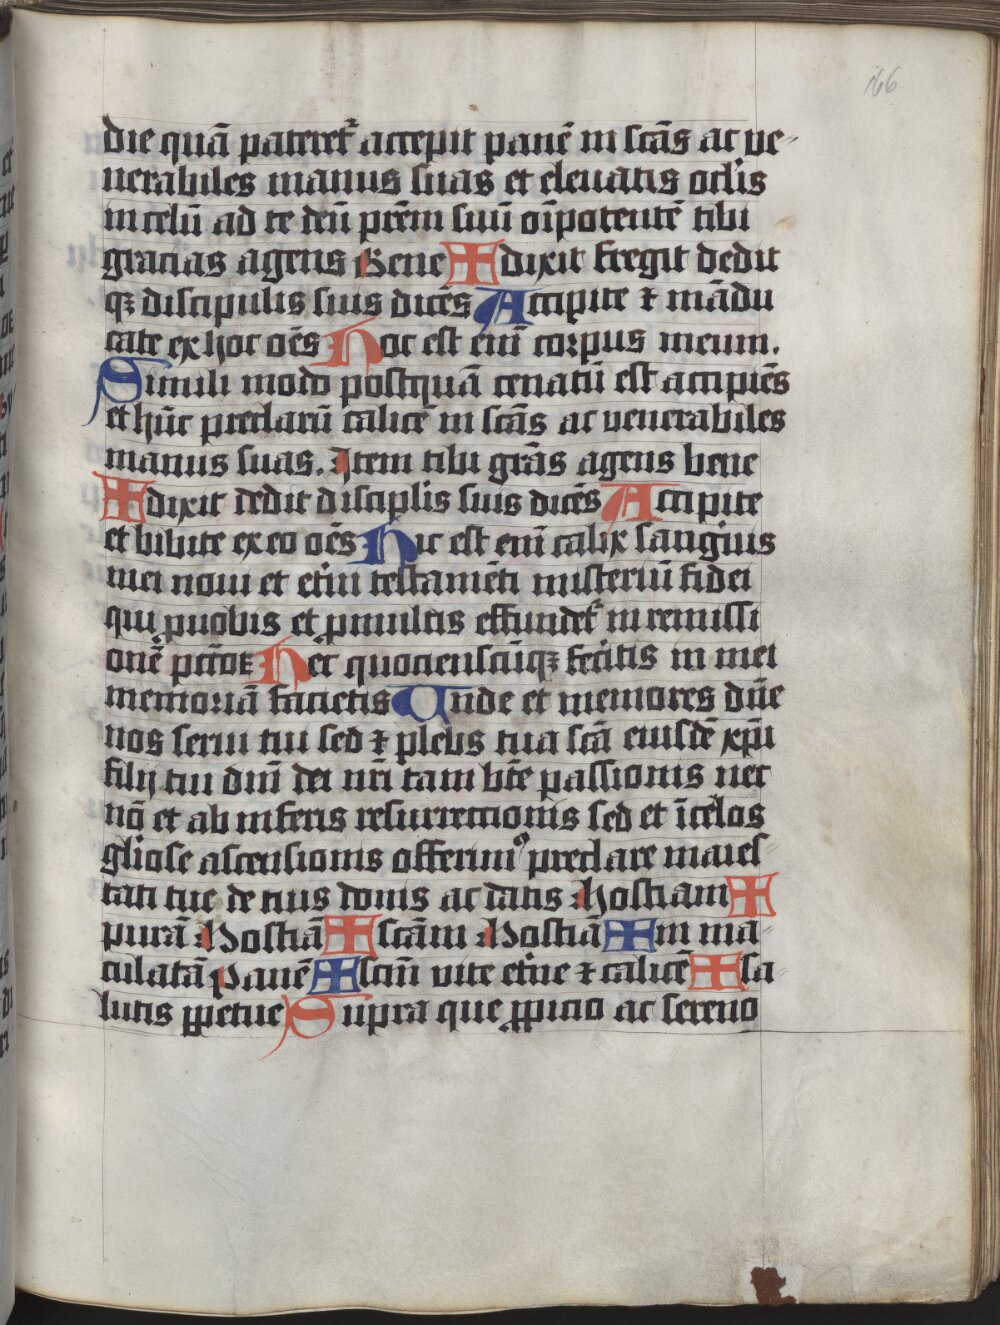 166
die quā pateret᷑ accepit panē in scās ac ve-
nerabiles manus suas et eleuatis oclis
in celū ad te deū prēm suū oīpotentē tibi
gracias agens Bene ✠ dixit fregit dedit
qꝫ discipulis suis dicēs Accipite ⁊ mādu
cate ex hoc oēs Hoc est enī corpus meum.
Simili modo postquā cenatū est accipiēs
et hūc preclarū calicē in scās ac venerabiles
manus suas. Item tibi grās agens bene
✠ dixit dedit disciplis suis dicēs Accipite
et bibite ex eo oēs Hic est enī calix sangius
mei noui et etīn testamēti misteriū fidei
qui ꝓuobis et ꝓmultis effundet᷑ in remissi
onē pctōꝝ Hec quocienscūqꝫ fecitis in mei
memoriā facietis Unde et memores dn̄e
nos serui tui sed ⁊ plebs tua scā eiusdē xp̄i
filij tui dn̄i dei nr̄i tam bt̄e passionis nec
nō et ab inferis resurrectionis sed et ī celos
gliose ascensionis offerimꝰ preclare maies
tati tue de tuis donis ac datis Hostiam ✠
purā Hostiā ✠ scām Hostiā ✠ in ma-
culatā Panē ✠ scm̄ vite et̄ne ⁊ calicē ✠ sa
lutis ꝑpetue Supra que ꝓpicio ac sereno